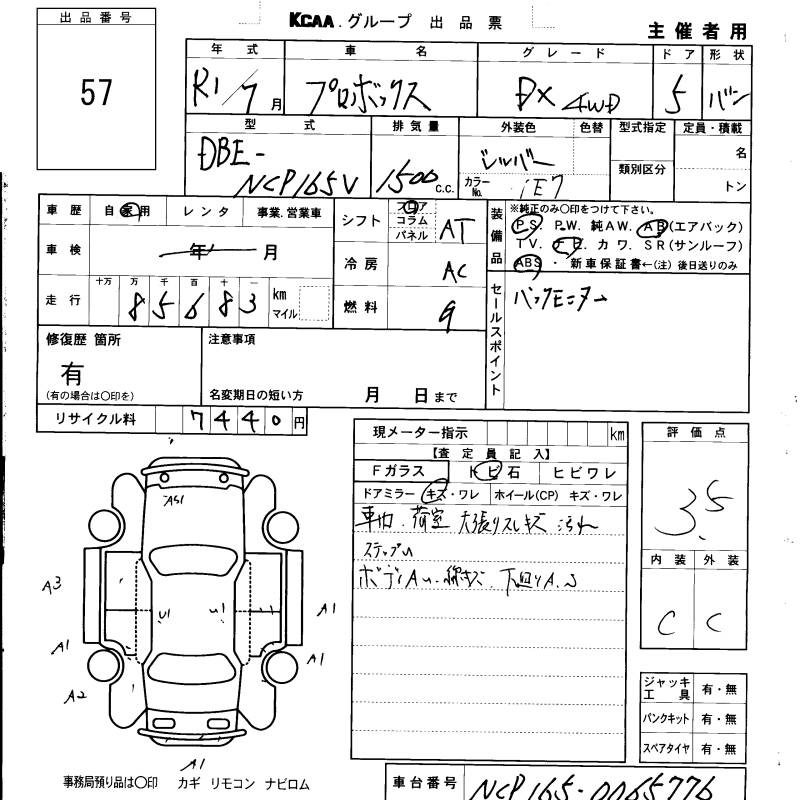 出品番号
57
KCAA.グループ 出品票
主催者用
年式 車名 グレード ドア 形状
R1/7月 プロボックス DX 4WD 5 バン
型式 排気量 外装色 色替 型式指定 定員・積載
DBE-
NCP165V 1500 c.c. シルバー カラーNo. 1E7 類別区分 名
トン
車歴 自家用 レンタ 事業.営業車
車検 年 月
走行 十万 万 千 百 十 一
8 5 6 8 3 km マイル
シフト フロア コラム パネル AT
冷房 AC
燃料 g
装備品
※純正のみ〇印をつけて下さい。
PS. P.W. 純AW. AB(エアバック)
TV. カワ. SR(サンルーフ)
ABS ・ 新車保証書←(注) 後日送りのみ
セールスポイント
バックモニター
修復歴 箇所
有
(有の場合は〇印を)
注意事項
名変期日の短い方 月 日まで
リサイクル料 7 4 4 0 円
現メーター指示 km
【査定員記入】
Fガラス トビ石 ヒビワレ
ドアミラー キズ・ワレ ホイール(CP) キズ・ワレ
車内.荷室 大張りスレキズ 汚れ
ステップU
ボディAU.線キズ. 下回りA.S
評価点
3.5
内装 外装
C C
AS1
A3
A1
A2
U1 U1
A1
A1
A1
ジャッキ工具 有・無
パンクキット 有・無
スペアタイヤ 有・無
事務局預り品は〇印 カギ リモコン ナビロム
車台番号 NCP165-0065776